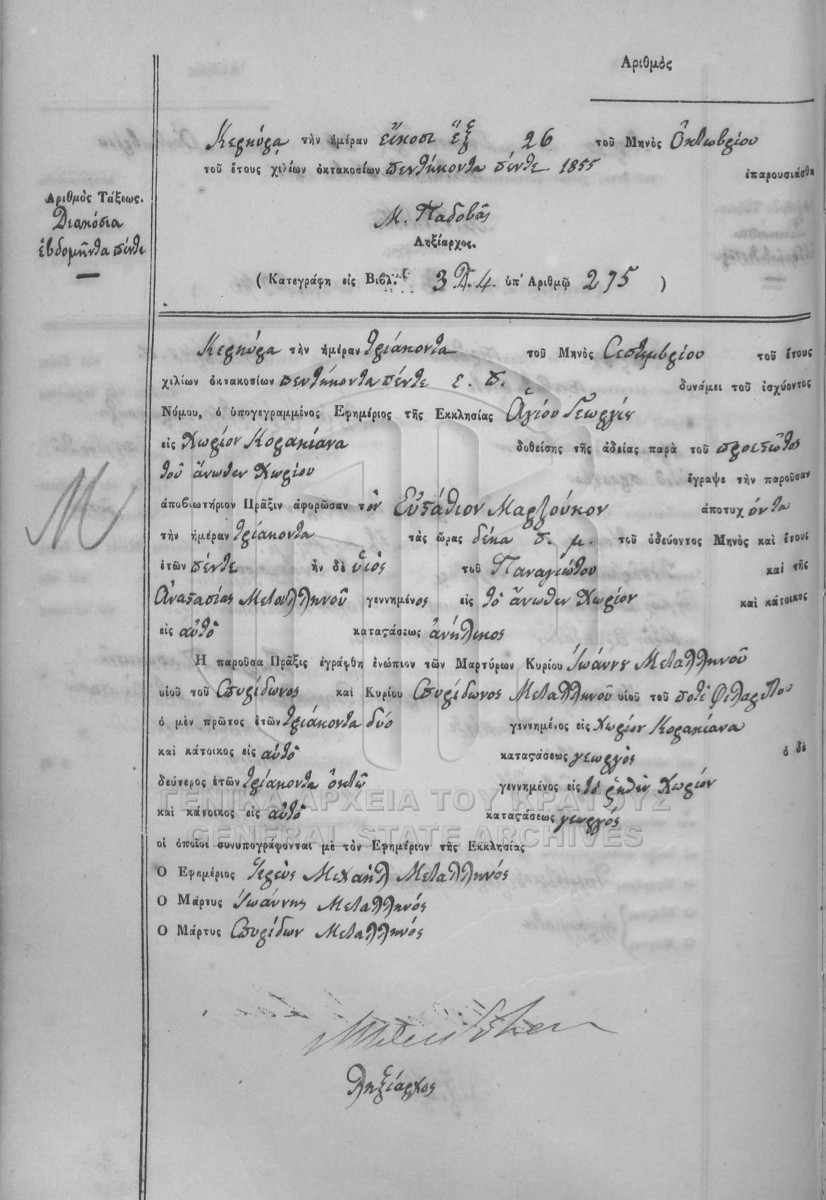 Αριθμὸς
Κερκύρα τὴν ἡμέραν εἴκοσι ἕξ 26 τοῦ Μηνὸς Ὀκτωβρίου
τοῦ ἔτους χιλίων ὀκτακοσίων πεντήκοντα πέντε 1855 ἐπαρουσιάσθη
Ἀριθμὸς Τάξεως.
Διακόσια
ἑβδομῆντα πέντε
Μ. Παδοβᾶς
Ληξίαρχος.
( Κατεγράφη εἰς Βιβλ. 3 Δ. 4. ὑπ' Ἀριθμῷ 275 )
Κερκύρα τὴν ἡμέραν τριάκοντα τοῦ Μηνὸς Σεπτεμβρίου τοῦ ἔτους
χιλίων ὀκτακοσίων πεντήκοντα πέντε ε. π. δυνάμει τοῦ ἰσχύοντος
Νόμου, ὁ ὑπογεγραμμένος Ἐφημέριος τῆς Ἐκκλησίας Ἁγίου Γεωργίου
εἰς Χωρίον Κορακιάνα δοθείσης τῆς ἀδείας παρὰ τοῦ προεστῶτος
τοῦ ἄνωθεν Χωρίου ἔγραψε τὴν παροῦσαν
ἀποβιωτήριον Πρᾶξιν ἀφορῶσαν τὸν Εὐστάθιον Μαρζοῦκον ἀποτυχόντα
τὴν ἡμέραν τριάκοντα τὰς ὥρας δέκα π. μ. τοῦ ὁδεύοντος Μηνὸς καὶ ἔτους
ἐτῶν πέντε ἦν δὲ υἱὸς τοῦ Παναγιώτου καὶ τῆς
Ἀναστασίας Μεταλληνοῦ γεννημένος εἰς τὸ ἄνωθεν Χωρίον καὶ κάτοικος
εἰς αὐτὸ καταςάσεως ἀνήλικος
Ἡ παροῦσα Πρᾶξις ἐγράφθη ἐνώπιον τῶν Μαρτύρων Κυρίου Ἰωάννη Μεταλληνοῦ
υἱοῦ τοῦ Σπυρίδωνος καὶ Κυρίου Σπυρίδωνος Μεταλληνοῦ υἱοῦ τοῦ ποτὲ Φιλαρέτου
ὁ μὲν πρῶτος ἐτῶν τριάκοντα δύο γεννημένος εἰς Χωρίον Κορακιάνα
καὶ κάτοικος εἰς αὐτὸ καταςάσεως γεωργὸς ὁ δὲ
δεύτερος ἐτῶν τριάκοντα ὀκτὼ γεννημένος εἰς τὸ ῥηθὲν Χωρίον
καὶ κάτοικος εἰς αὐτὸ καταςάσεως γεωργός
οἱ ὁποῖοι συνυπογράφονται μὲ τὸν Ἐφημέριον τῆς Ἐκκλησίας
Ο Ἐφημέριος Ἱερεὺς Μιχαὴλ Μεταλληνός
Ο Μάρτυς Ἰωάννης Μεταλληνός
Ο Μάρτυς Σπυρίδων Μεταλληνός
Ληξίαρχος
Μ
ΓΕΝΙΚΑ ΑΡΧΕΙΑ ΤΟΥ ΚΡΑΤΟΥΣ
GENERAL STATE ARCHIVES